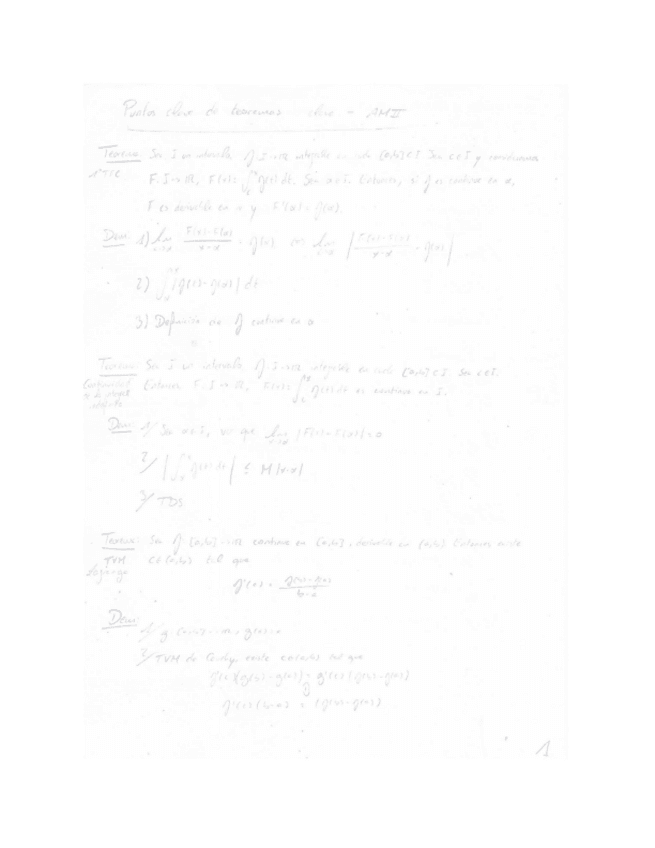 Puntos clave de teoremas clave - AMII
Teorema: Sea I un intervalo f: I→ℝ integrable en cada [a,b]⊂I. Sea c∈I y consideremos
1º TFC F: I→ℝ, F(x)= ∫_c^x f(t) dt. Sea α∈I. Entonces, si f es continua en α,
F es derivable en α y F'(α) = f(α).
Dem: 1) lim_{x→α} (F(x)-F(α))/(x-α) = f(α) lim_{x→α} | (F(x)-F(α))/(x-α) - f(α) |
2) ∫_α^x |f(t)-f(α)| dt
3) Definición de f continua en α
Teorema: Sea I un intervalo f: I→ℝ integrable en cada [a,b]⊂I. Sea c∈I.
Continuidad Entonces F: I→ℝ, F(x)= ∫_c^x f(t) dt es continua en I.
de la integral
indefinida
Dem: 1/ Sea α∈I, ver que lim_{x→α} |F(x)-F(α)| = 0
2/ | ∫_α^x f(t) dt | ≤ M|x-α|
3/ TDS
Teorema: Sea f: [a,b]→ℝ continua en [a,b], derivable en (a,b). Entonces existe
TVM c∈(a,b) tal que
Lagrange
f'(c) = (f(b)-f(a))/(b-a)
Dem:
1/ g: [a,b]→ℝ, g(x)=x
2/ TVM de Cauchy, existe c∈(a,b) tal que
f'(c)(g(b)-g(a)) = g'(c)(f(b)-f(a))
f'(c)(b-a) = (f(b)-f(a))
1